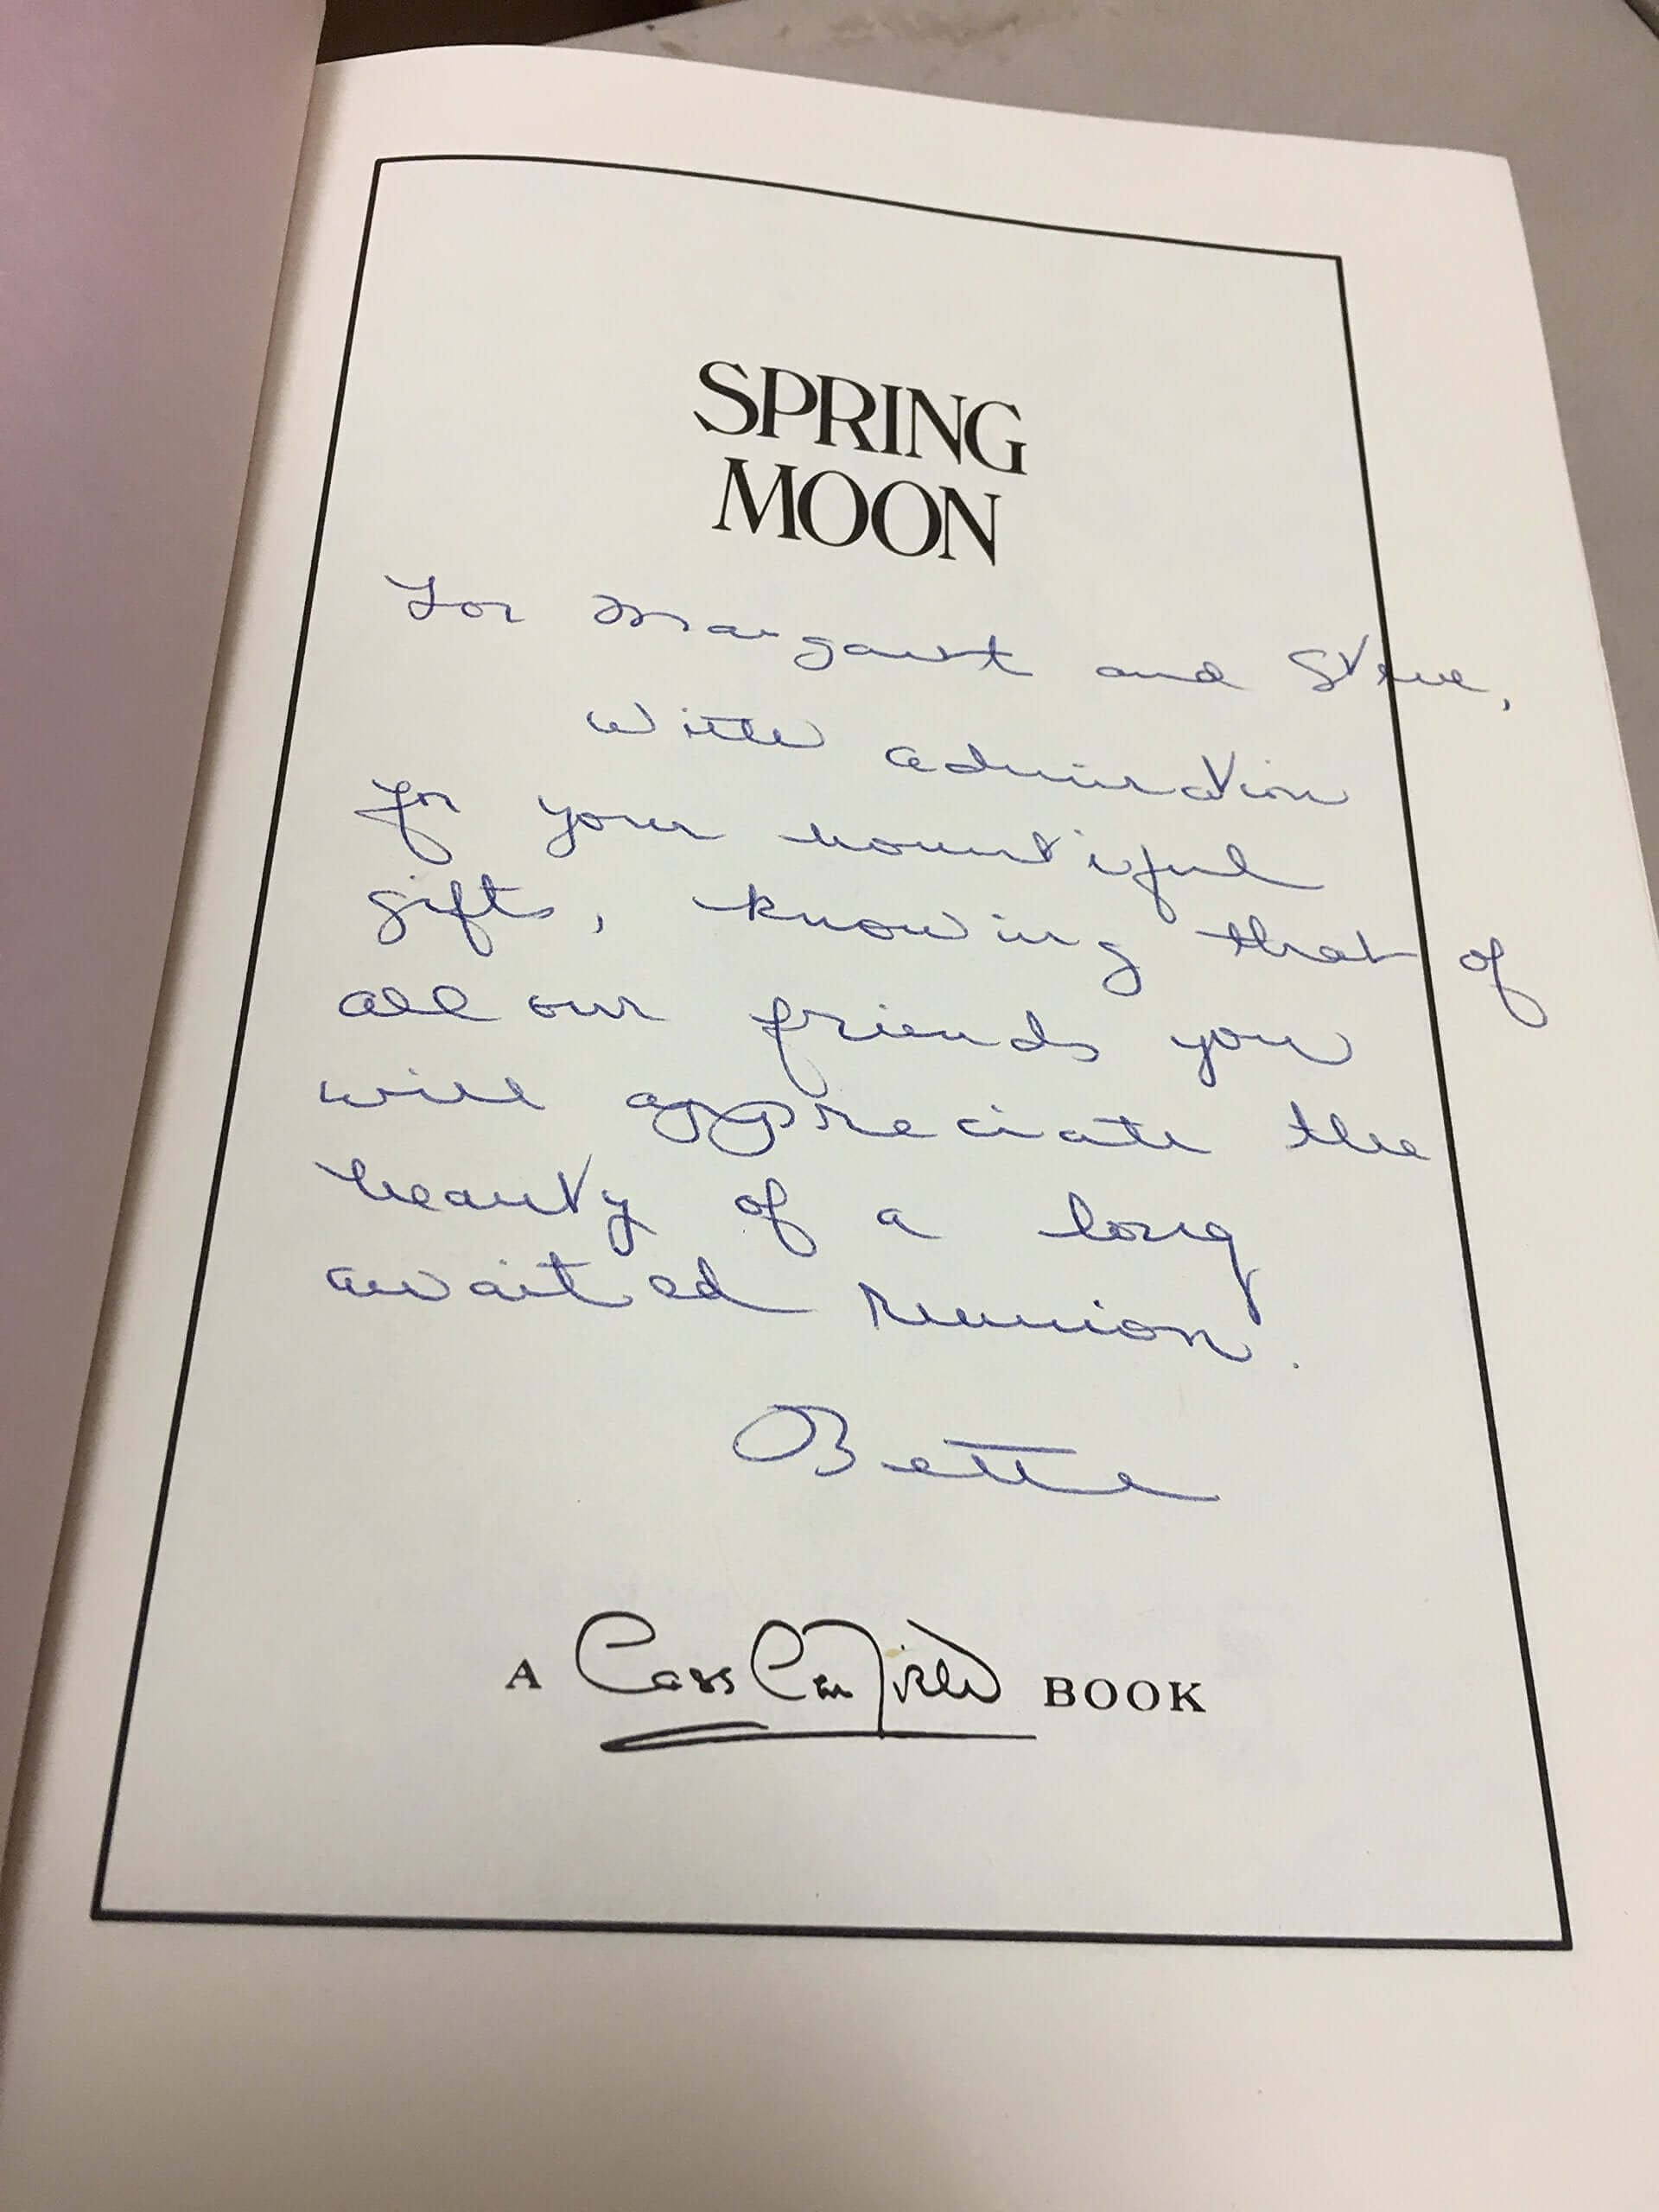 SPRING
MOON
For Margaret and Steve,
With admiration
for your bountiful
gifts, knowing that of
all our friends you
will appreciate the
beauty of a long
awaited reunion.
Bette
A Cass Canfield BOOK